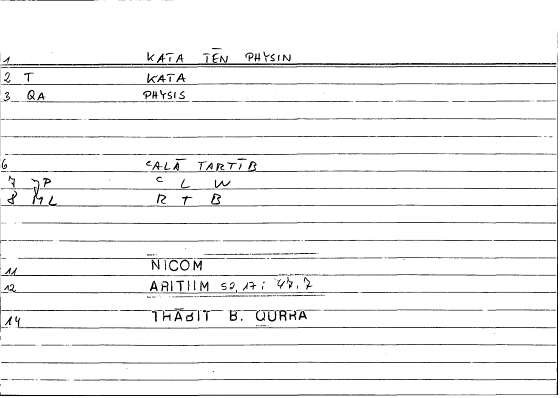 1 KATA TĒN PHYSIN
2 T KATA
3 QA PHYSIS
6 ᶜALĀ TARTĪB
7 JP C L W
8 ML R T B
11 NICOM
12 ARITIIM 52,17; 47,7
14 THĀBIT B. QURRA